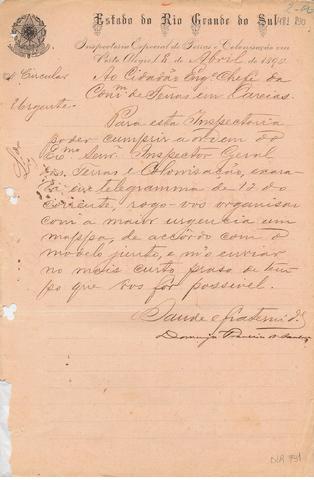 Estado do Rio Grande do Sul
Inspectoria Especial de Terras e Colonisação em
Porto Alegre, 18 de Abril de 1890.
Circular
Urgente.
Ao Cidadão Engº Chefe da
Comm de Terras em Caxias.
Para esta Inspectoria
poder cumprir a ordem do
Exmo Senr. Inspector Geral
das Terras e Colonisação, exara
da em telegramma de 17 do
corrente, rogo-vos organisar
com a maior urgencia um
mappa, de accôrdo com o
modelo junto, e m'o enviar
no mais curto praso de tem
po que vos fôr possivel.
Saude e fraternid.e